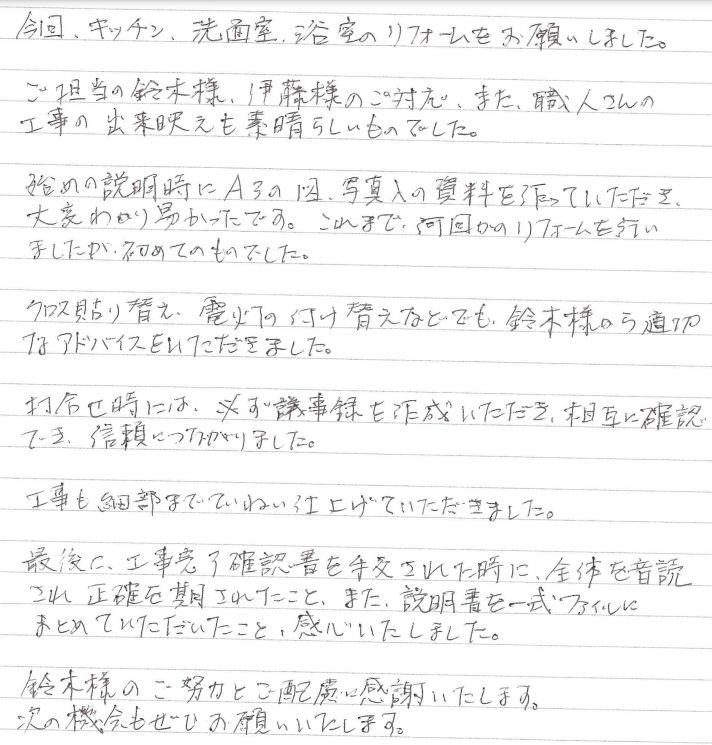 今回、キッチン、洗面室、浴室のリフォームをお願いしました。
ご担当の鈴木様、伊藤様のご対応、また、職人さんの
工事の出来映えも素晴らしいものでした。
始めの説明時にA3の図、写真入の資料を作っていただき、
大変わかり易かったです。これまで、何回かのリフォームを行い
ましたが、初めてのものでした。
クロス貼り替え、電灯の付け替えなどでも、鈴木様から適切
なアドバイスをいただきました。
打合せ時には、必ず議事録を作成いただき、相互に確認
でき、信頼につながりました。
工事も細部までていねい仕上げていただきました。
最後に、工事完了確認書を手交された時に、全体を音読
され正確を期されたこと、また、説明書を一式ファイルに
まとめていただいたこと、感心いたしました。
鈴木様のご努力とご配慮に感謝いたします。
次の機会もぜひお願いいたします。